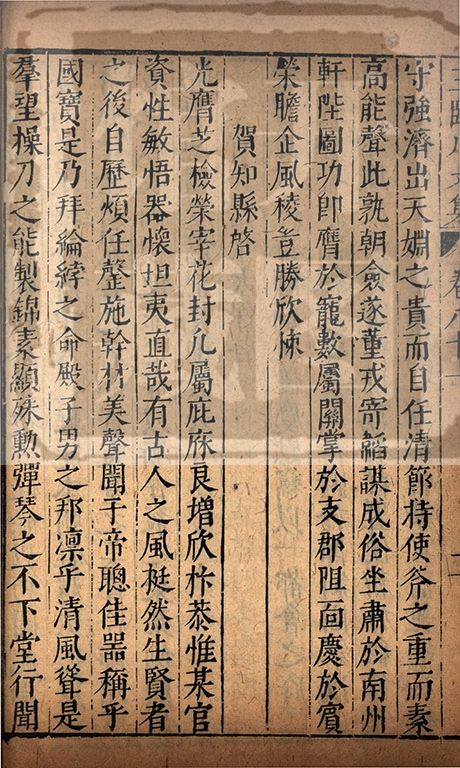 守強濟出天姻之貴而自任清節持使斧之重而素
高能聲此孰朝僉遂董戎寄韜謀成俗坐肅於南州
軒陛圖功即膺於寵數屬關掌於支郡阻面慶於賓
榮瞻企風稜豈勝欣悚
賀知縣啓
光膺芝檢榮宰花封凡屬庇庥良增欣忭恭惟某官
資性敏悟器懷坦夷直哉有古人之風挺然生賢者
之後自歷煩任罄施幹材美聲聞于帝聰佳器稱乎
國寶是乃拜綸綍之命殿子男之邦凛乎清風聳是
羣望操刀之能製錦素顯殊勲彈琴之不下堂行聞